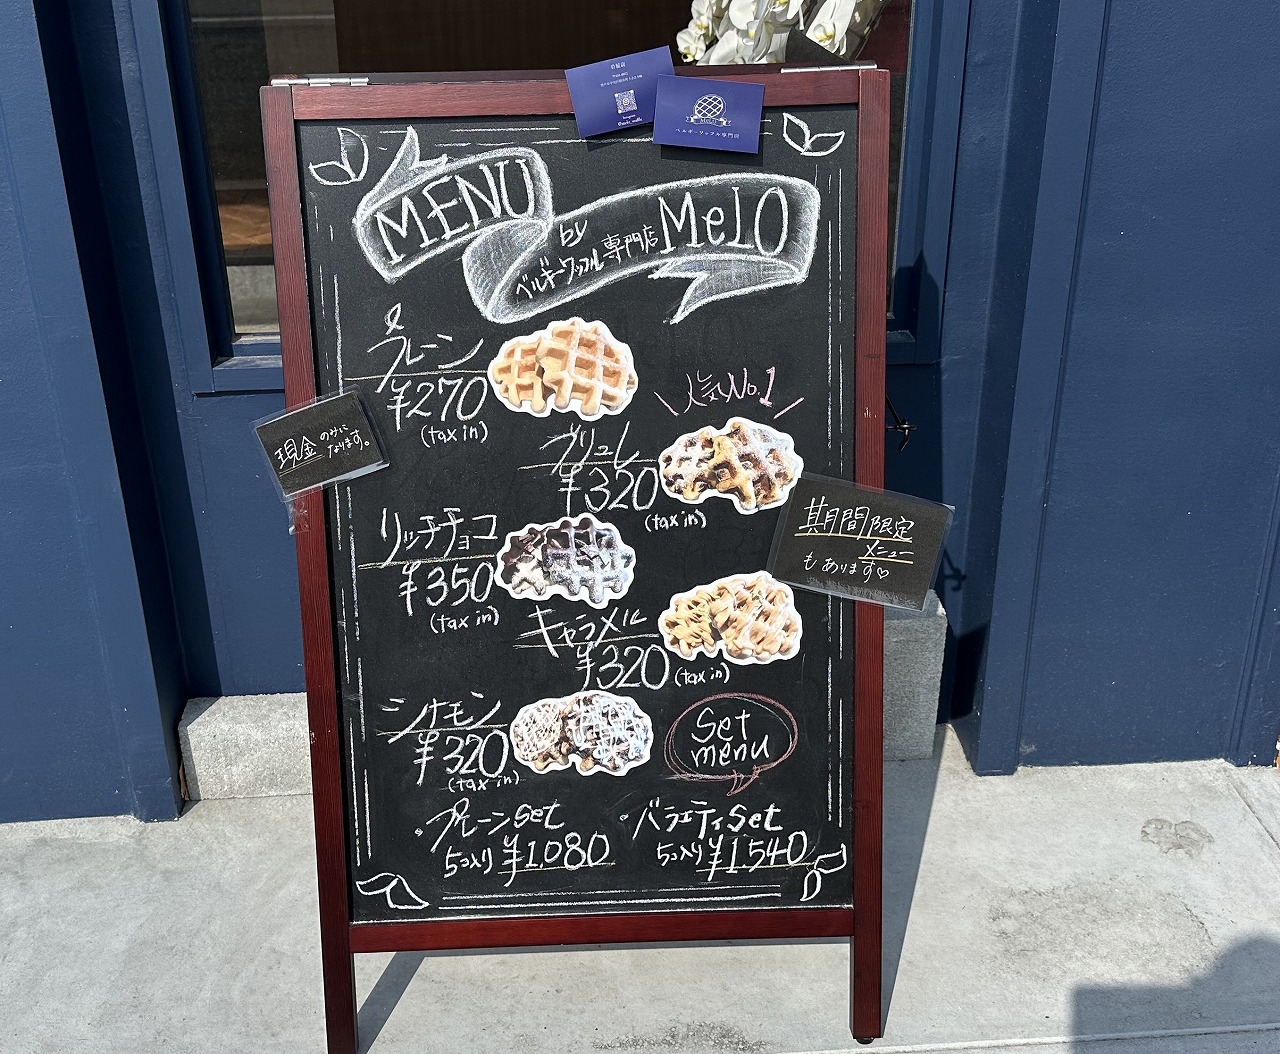 MeLO
ベルギーワッフル専門店
MENU
by
ベルギーワッフル専門店
MeLO
プレーン
¥270
(tax in)
人気No.1
ブリュレ
¥320
(tax in)
現金のみに
なります。
リッチチョコ
¥350
(tax in)
期間限定
メニュー
もあります♡
キャラメル
¥320
(tax in)
シナモン
¥320
(tax in)
Set
menu
・プレーンset
5コ入り ¥1.080
・バラエティset
5コ入り ¥1.540